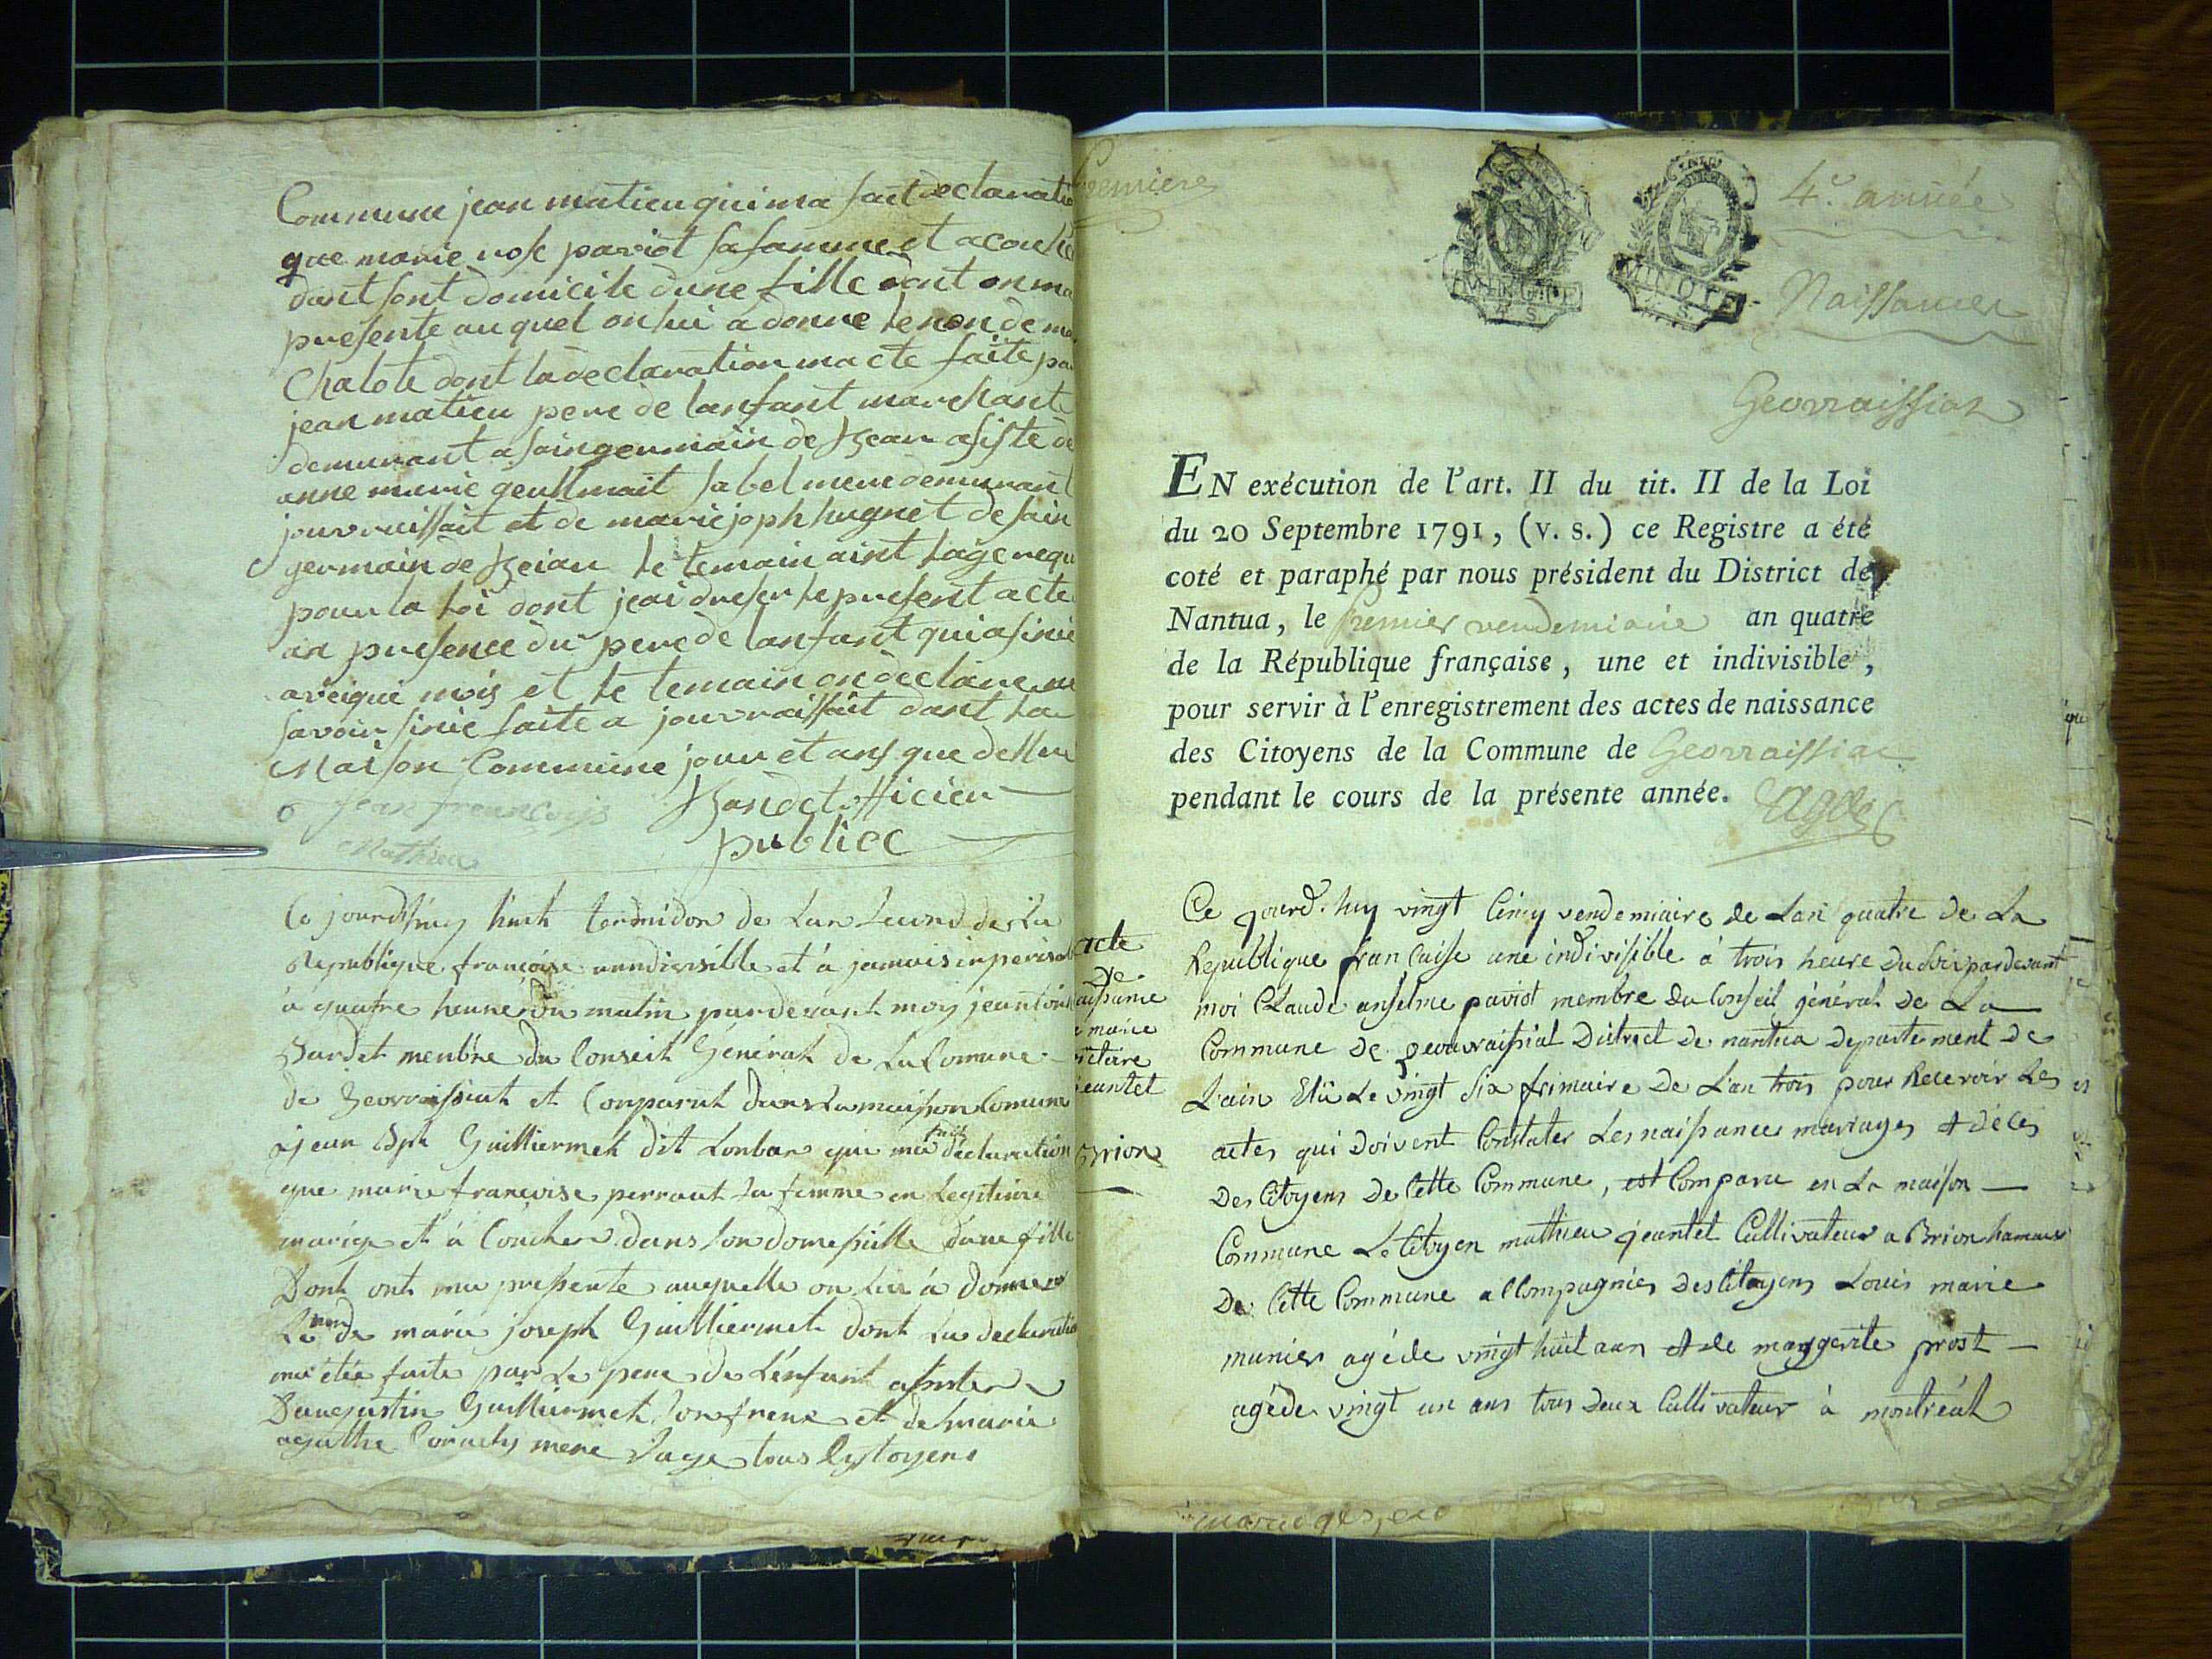 Commune jean matieu qui ma fait declaratio
que marie rose paviot sa famme et acouche
dant sont domicile dune fille dont on ma
presente au quel on lui a donne le non de ma
Chalote dont la declaration ma ete faite pa
jean matieu pere de lanfant marchant
demurant a saingermain de asiste de
anne marie geullmait sa bel mere demurant
jouvraissait et de marie joph hugnet de sain
germain de le temain aint lage requ
pour la loi dont jeai dreser le present acte
an presence du pere de lanfant qui a sinie
aveique mois et le temain on declare ne
savoir sinie faite a jouvraissait dant la
Maison Commune jour et ans que dessu
jean françois officier
Mathieu publicc
Ce jourdhuy huit termidor de Lan Second de La
Republique françoise unndivisible et à jamais inperisab
à quatre heure du matin pardevant moy jean
menbre du Conseil Général de La Comune
de Geovraissiat et Conparut dans La maisson Comune
jean Jph Guilliermet dit Lonbar qui ma fait declaration
que marie francoise perraut sa femme en Legitime
marige et à Coucher dans son domessille dune fille
Dont ont ma pressente auquelle on Lui à donner
Le nom de marie joseph Guilliermet dont La declaratio
ma étée faite par Le pere de L'enfant assister
Daugustin Guilliermet son frere et de marie
agathe mere sage tous Cytoyens
Premiere
4.e année
Naissances
Geovraissiat
EN exécution de l'art. II du tit. II de la Loi
du 20 Septembre 1791, (v. s.) ce Registre a été
coté et paraphé par nous président du District de
Nantua, le premier vendemiaire an quatre
de la République française, une et indivisible,
pour servir à l'enregistrement des actes de naissance
des Citoyens de la Commune de Geovraissiat
pendant le cours de la présente année.
acte
de
aissance
marie
jeantet
Brion
Ce jourd'huy vingt Cinq vendemiaire de Lan quatre de La
Republique francaisse une indivisible à trois heure du Soir pardevant
moi Claude anselme paviot membre du Conseil général de La
Commune de geovraissiat District de nantua departement de
L'ain Elü Le vingt six frimaire de L'an trois pour Recevoir Les
actes qui doivent Constater Les naissances mariages et déces
Des Citoyens de Cette Commune, est Comparu en La maison
Commune Le Citoyen mathieu jeantet Cultivateur a Brion hameau
De Cette Commune accompagnés des Citoyens Louis marie
munier agé de vingt huit ans et de margerite prost
agéde vingt un ans tous deux Cultivateur à montréal
mariages,